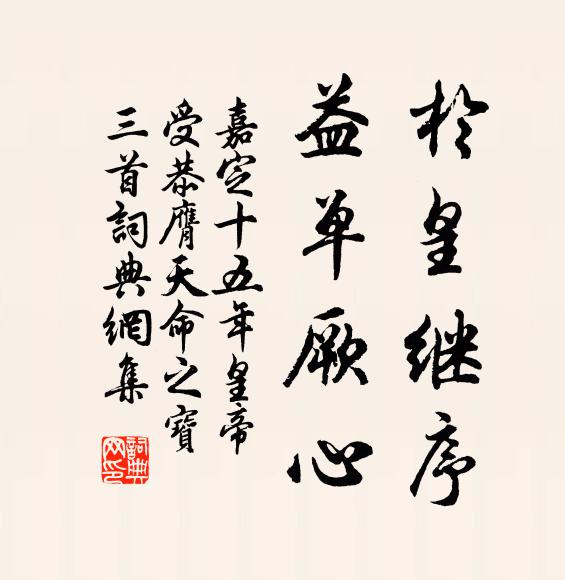 於皇继序
益单厥心
嘉定十五年皇帝
受恭膺天命之寶
三首詞典網集
詞典网印